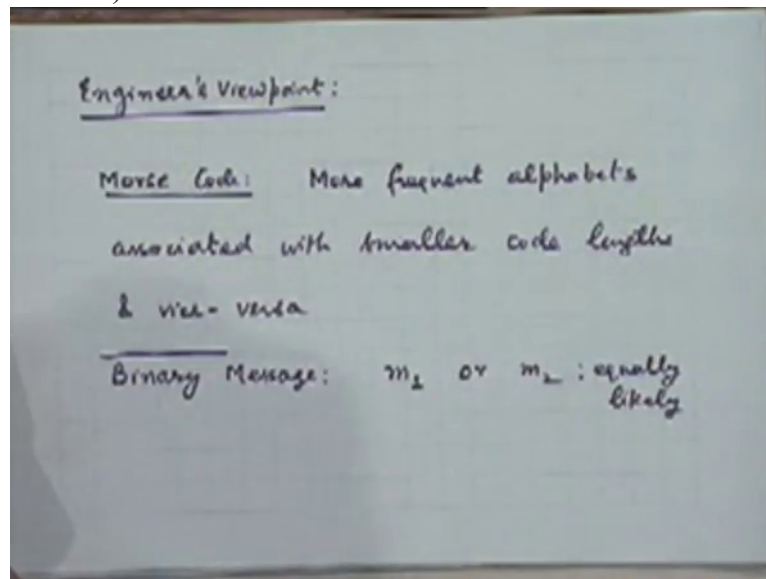 Engineer's Viewpoint:
Morse Code: More frequent alphabets
associated with smaller code lengths
& vice-versa
Binary Message: m₁ or m₂ : equally
likely